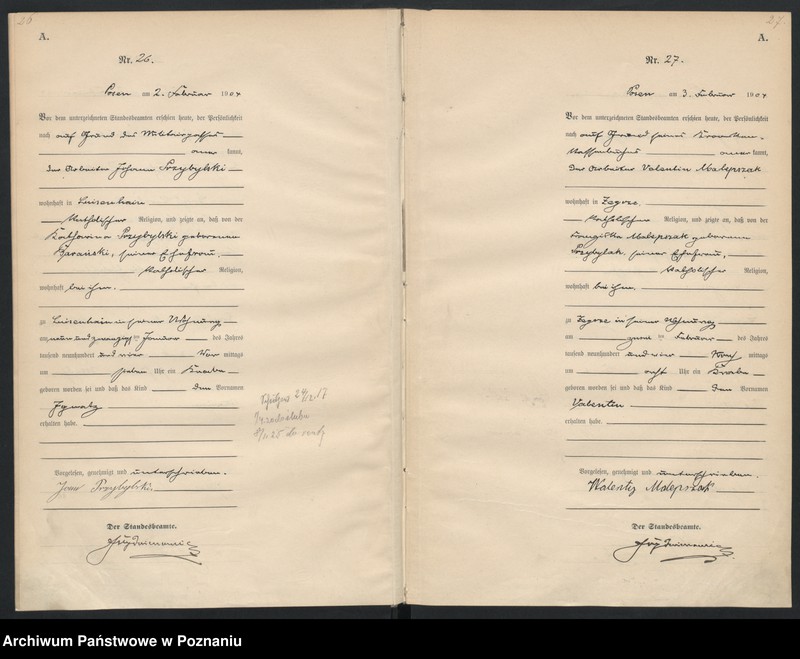 26
A.
Nr. 26.
Posen am 2. Februar 1904
Vor dem unterzeichneten Standesbeamten erschien heute, der Persönlichkeit
nach auf Grund des Militärpasses
aner kannt,
der Arbeiter Johann Przybylski
wohnhaft in Luisenhain
katholischer Religion, und zeigte an, daß von der
Katharina Przybylski geborenen
seiner Ehefrau,
katholischer Religion,
wohnhaft bei ihm.
zu Luisenhain in seiner Wohnung
am neun und zwanzigsten Januar des Jahres
tausend neunhundert und vier Vor mittags
um sieben Uhr ein Knabe
geboren worden sei und daß das Kind den Vornamen
Ignatz
erhalten habe.
Vorgelesen, genehmigt und unterschrieben.
Jan Przybylski.
Der Standesbeamte.
27.
A.
Nr. 27.
Posen am 3. Februar 1904
Vor dem unterzeichneten Standesbeamten erschien heute, der Persönlichkeit
nach auf Grund seines Kranken-
kassenbuches aner kannt,
der Arbeiter Valentin Malepszak
wohnhaft in Zegrze
katholischer Religion, und zeigte an, daß von der
Franziska Malepszak geborenen
Przybylak, seiner Ehefrau,
katholischer Religion,
wohnhaft bei ihm.
zu Zegrze in seiner Wohnung
am zwei ten Februar des Jahres
tausend neunhundert und vier Vor mittags
um acht Uhr ein Knabe
geboren worden sei und daß das Kind den Vornamen
Valentin
erhalten habe.
Vorgelesen, genehmigt und unterschrieben.
Walenty Malepszak
Der Standesbeamte.
Archiwum Państwowe w Poznaniu